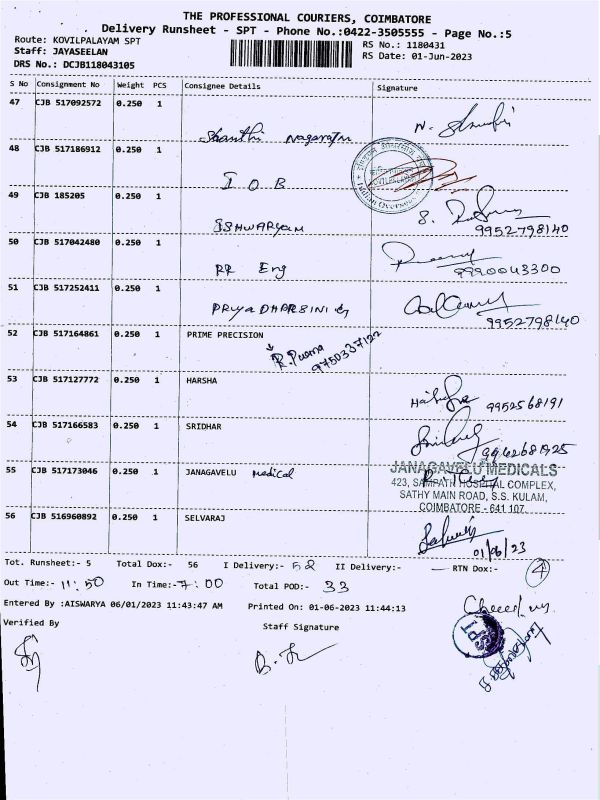 THE PROFESSIONAL COURIERS, COIMBATORE
Delivery Runsheet - SPT - Phone No.:0422-3505555 - Page No.:5
Route: KOVILPALAYAM SPT
Staff: JAYASEELAN
DRS No.: DCJB118043105
RS No.: 1180431
RS Date: 01-Jun-2023
S No Consignment No Weight PCS Consignee Details Signature
47 CJB 517092572 0.250 1 Shanthi Nagarajan
48 CJB 517186912 0.250 1 I O B
49 CJB 185205 0.250 1 ISHWARYAM 9952798140
50 CJB 517042480 0.250 1 RR Eng 9920043300
51 CJB 517252411 0.250 1 PRIYADHARSINI 9952798140
52 CJB 517164861 0.250 1 PRIME PRECISION
9750337122
53 CJB 517127772 0.250 1 HARSHA 9952568191
54 CJB 517166583 0.250 1 SRIDHAR
55 CJB 517173046 0.250 1 JANAGAVELU medical
JANAGAVELU MEDICALS
423, SAMPATH HOSPITAL COMPLEX,
SATHY MAIN ROAD, S.S. KULAM,
COIMBATORE - 641 107.
56 CJB 516960892 0.250 1 SELVARAJ
01/06/23
Tot. Runsheet:- 5 Total Dox:- 56 I Delivery:- 52 II Delivery:- — RTN Dox:- 4
Out Time:- 11:50 In Time:- 7:00 Total POD:- 33
Entered By :AISWARYA 06/01/2023 11:43:47 AM Printed On: 01-06-2023 11:44:13
Verified By Staff Signature
SPT